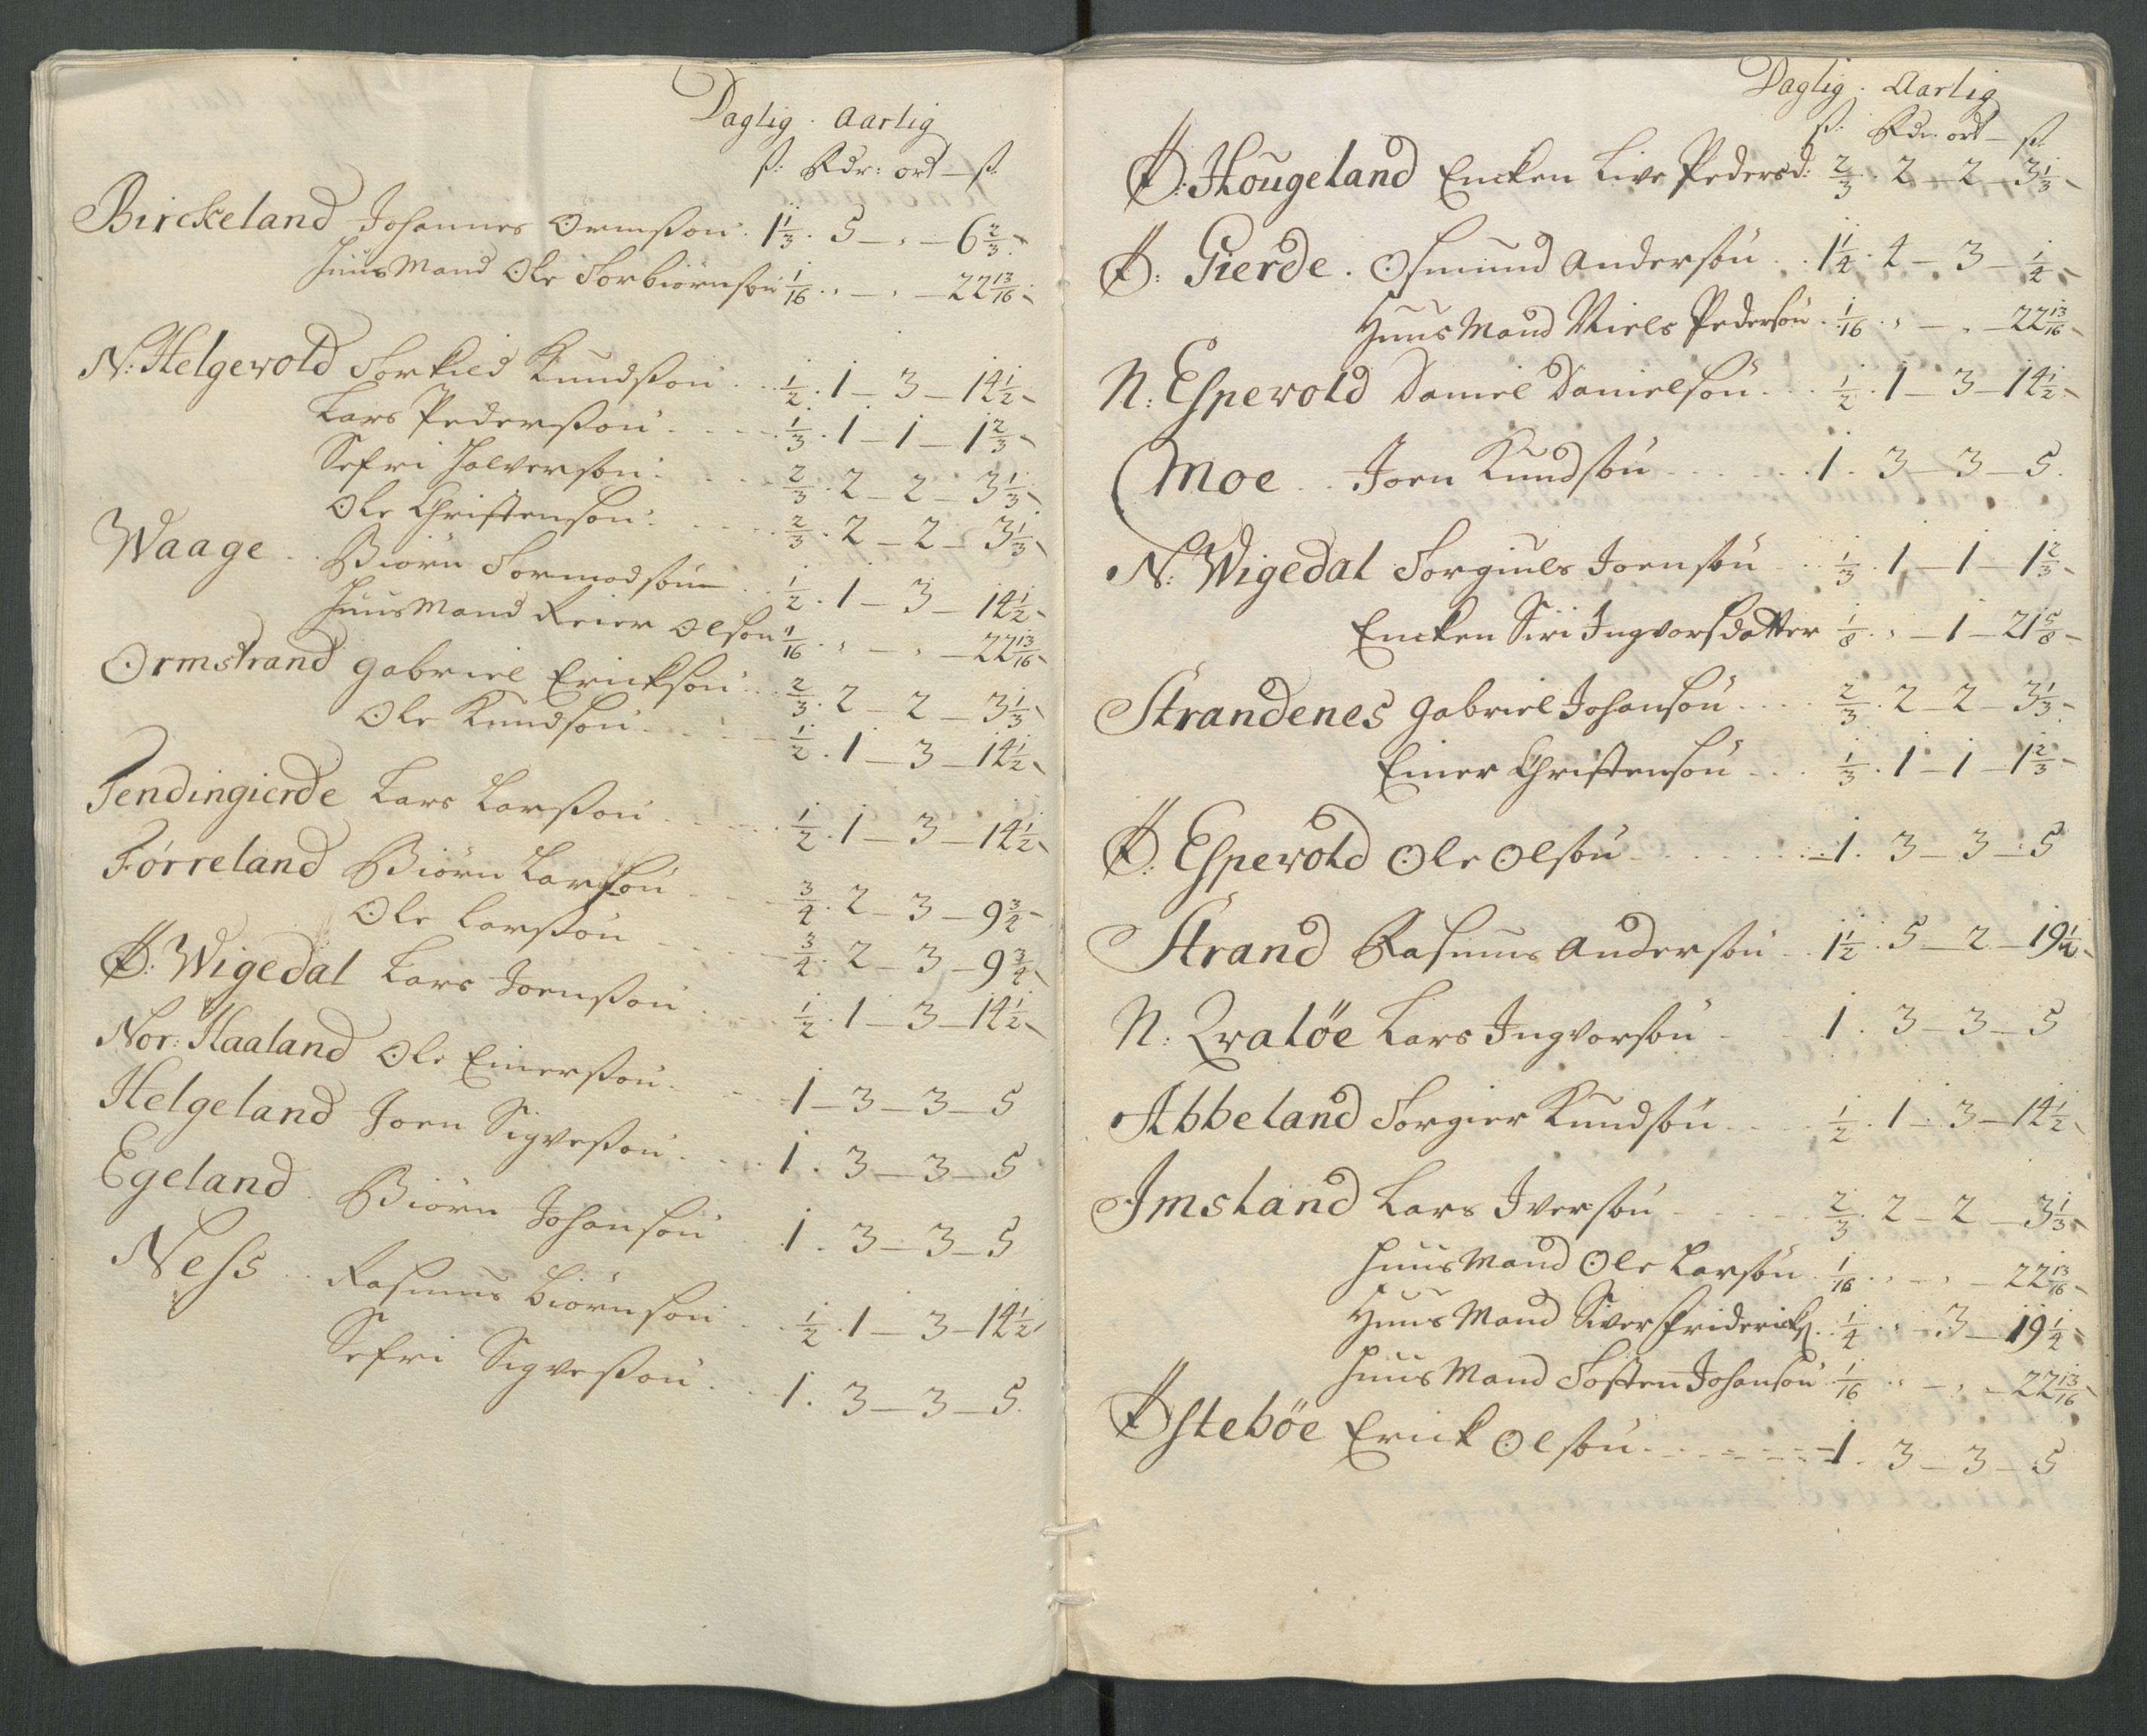 Daglig. Aarlig
ß: Rdr: ort – ß.
Birckeland Johannes Ormssøn. 1 1/3. 5 – " – 6 2/3.
Huus Mand Ole Torbiørnsøn 1/16. " – " – 22 13/16.
N: Helgevold Torkild Knudssøn. 1/2. 1 – 3 – 14 1/2.
Lars Pederssøn. 1/3. 1 – 1 – 1 2/3.
Sefri Halversøn. 2/3. 2 – 2 – 3 1/3.
Ole Christensøn. 2/3. 2 – 2 – 3 1/3.
Waage Biørn Tormodsøn 1/2. 1 – 3 – 14 1/2.
Huus Mand Reier Olsøn 1/16. " – " – 22 13/16.
Ormstrand Gabriel Ericksøn. 2/3. 2 – 2 – 3 1/3.
Ole Knudsøn 1/2. 1 – 3 – 14 1/2.
Tendingierde Lars Larssøn 1/2. 1 – 3 – 14 1/2.
Førreland Biørn Larssøn 3/4. 2 – 3 – 9 3/4.
Ole Larssøn 3/4. 2 – 3 – 9 3/4.
Ø: Wigedal Lars Joenssøn 1/2. 1 – 3 – 14 1/2.
Nor: Haaland Ole Einerssøn. 1 – 3 – 3 – 5
Helgeland Joen Sigvessøn. 1. 3 – 3 – 5
Egeland Biørn Johansøn 1. 3 – 3 – 5
Ness Rasmus Biørnsøn 1/2. 1 – 3 – 14 1/2.
Sefri Sigvessøn. 1. 3 – 3 – 5.
Daglig. Aarlig
ß: Rdr: ort – ß.
Ø: Hougeland Encken Live Pedersd: 2/3. 2 – 2 – 3 1/3.
Ø: Gierde. Osmund Andersøn. 1 1/4. 4 – 3 – 1/4.
Huus Mand Niels Pedersøn. 1/16. " – " – 22 13/16.
N: Espevold Daniel Danielsøn. 1/2. 1 – 3 – 14 1/2.
Moe Joen Knudsøn 1. 3 – 3 – 5.
N: Wigedal Torgiuls Joensøn 1/3. 1 – 1 – 1 2/3.
Encken Siri Ingvorsdatter 1/8. " – 1 – 21 5/8.
Strandenes Gabriel Johansøn. 2/3. 2 – 2 – 3 1/3.
Einer Christensøn 1/3. 1 – 1 – 1 2/3.
Ø: Espevold Ole Olsøn 1. 3 – 3 – 5
Strand Rasmus Andersøn 1 1/2. 5 – 2 – 19 1/2.
N: Qvaløe Lars Ingvorsøn 1. 3 – 3 – 5
Abbeland Torgier Knudsøn 1/2. 1. 3 – 14 1/2.
Imsland Lars Iversøn 2/3. 2 – 2 – 3 1/3.
Huus Mand Ole Larsøn. 1/16. " – " – 22 13/16.
Huus Mand Siver Friderichs. 1/4. " – 3 – 19 1/4.
Huus Mand Tosten Johansøn 1/16. " – " – 22 13/16.
Østebøe Erick Olsøn. 1. 3 – 3 – 5